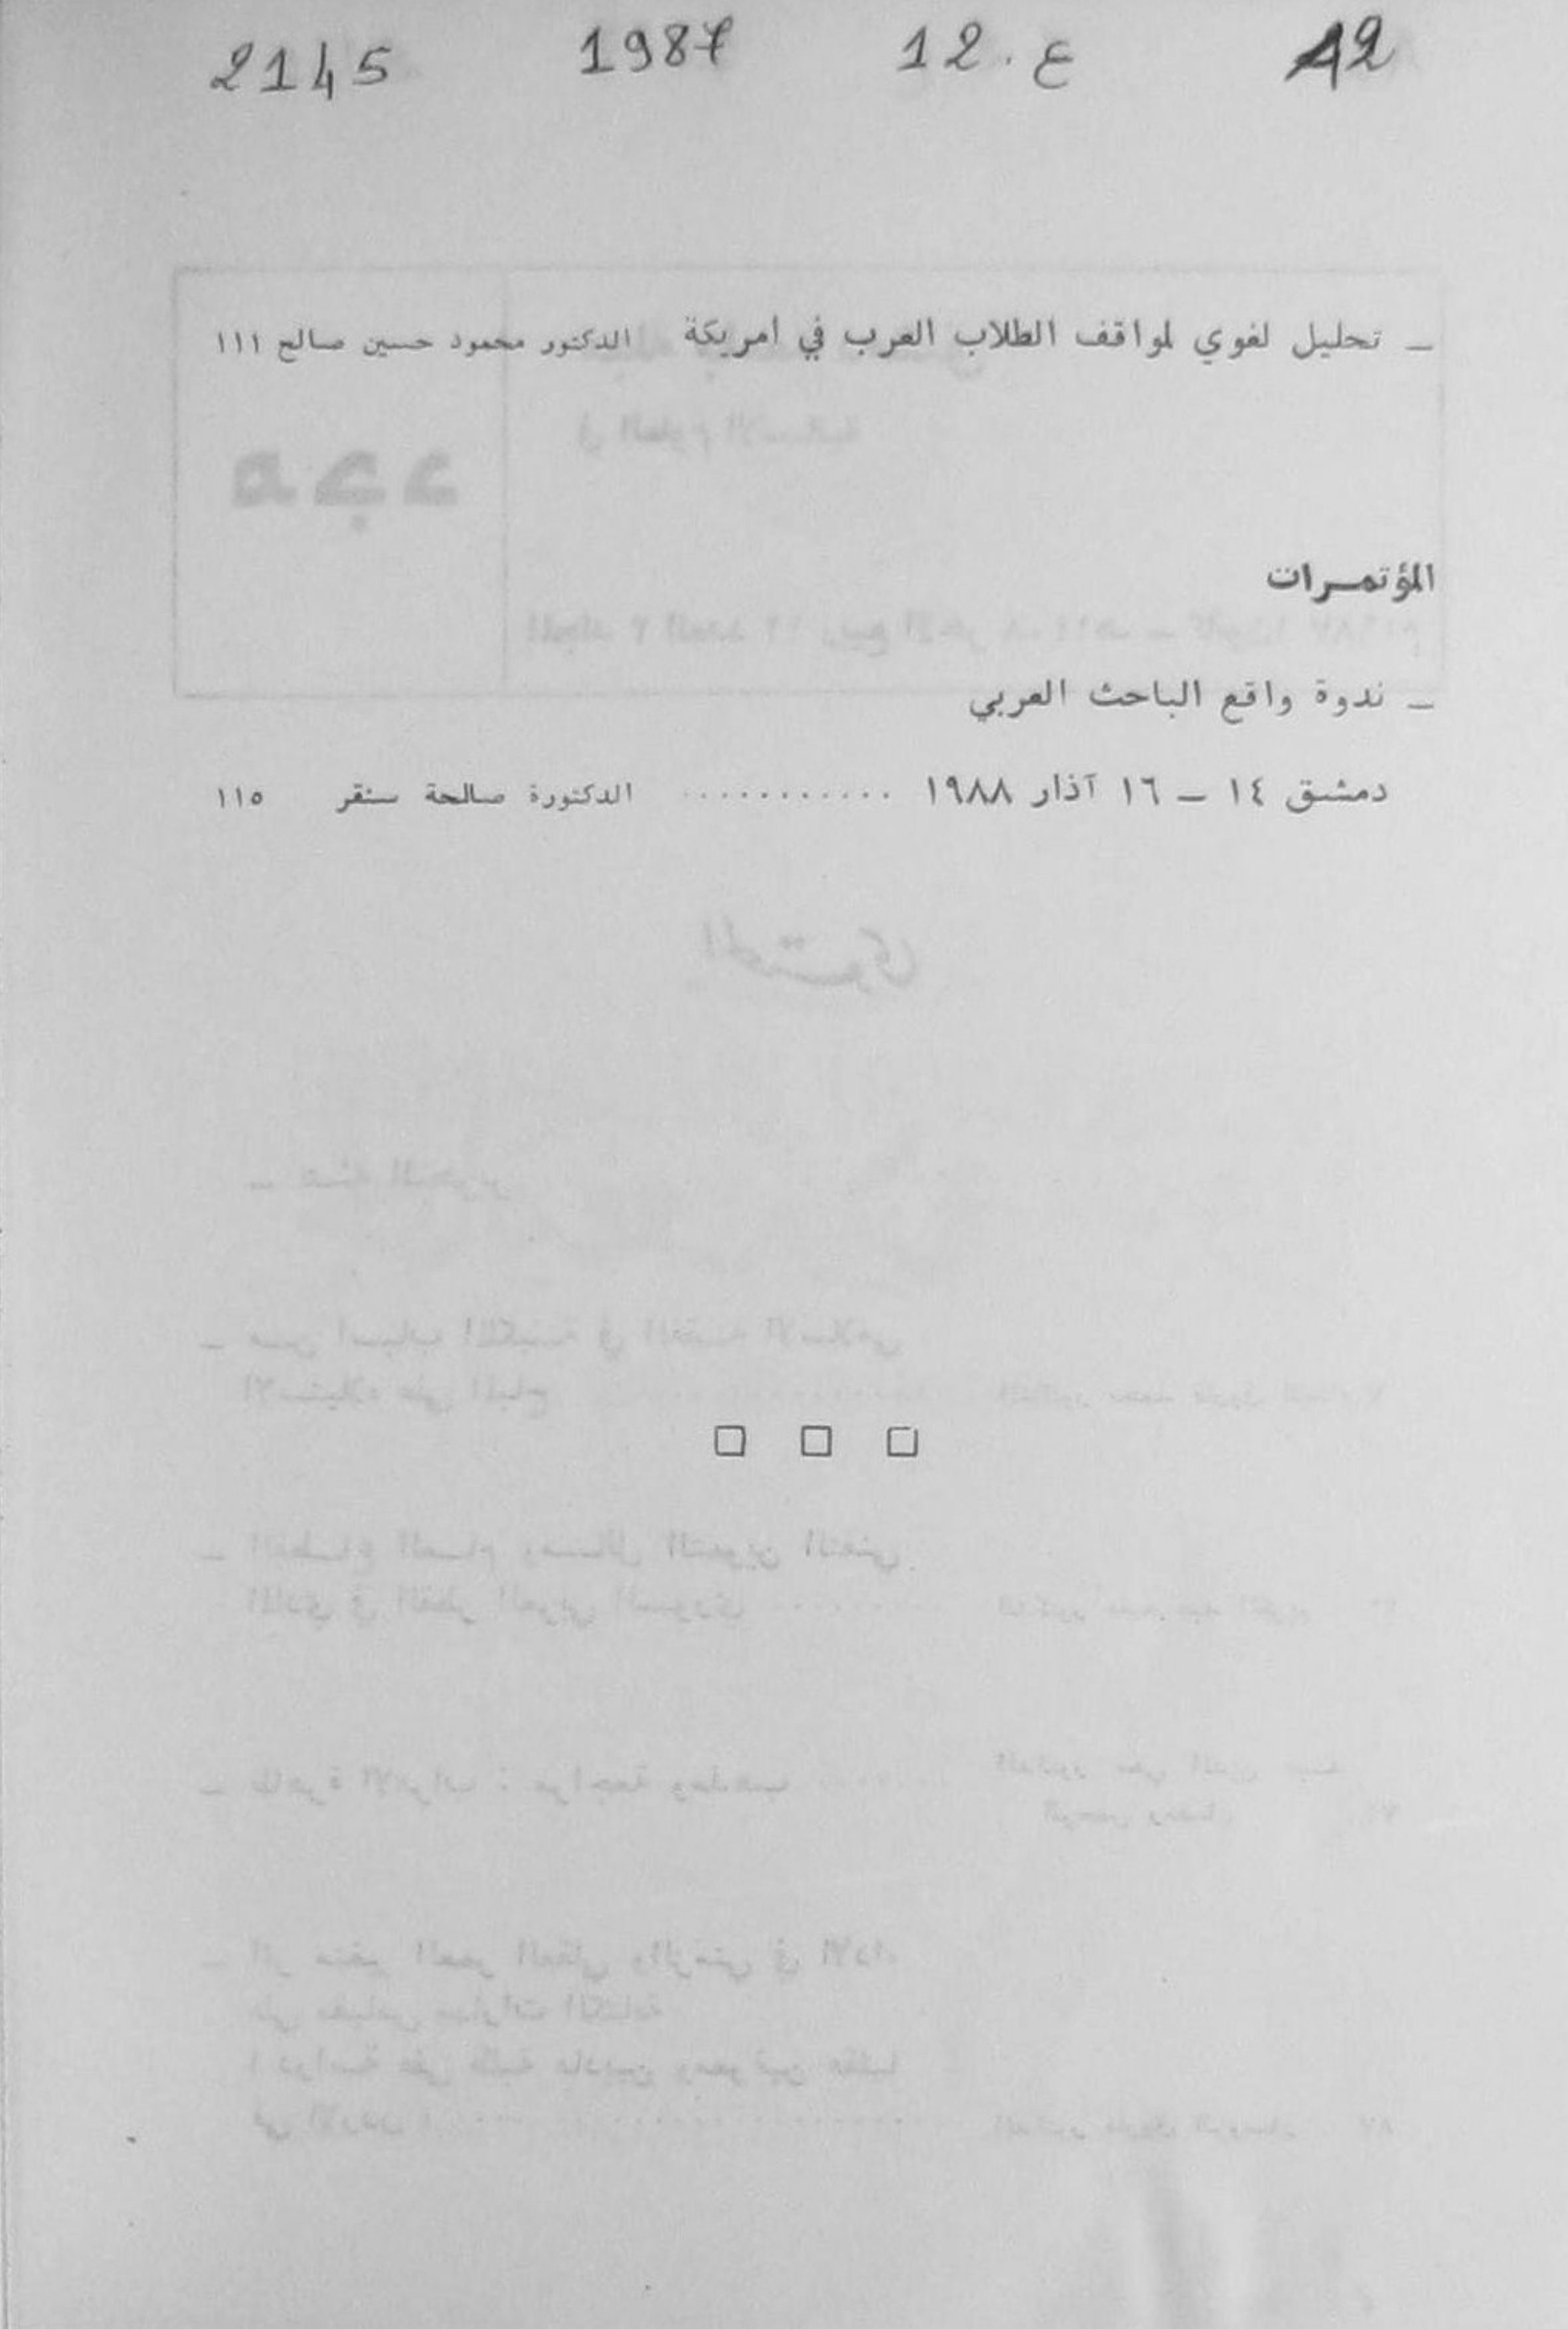 2145 1987 12.ع 12
ـ تحليل لغوي لمواقف الطلاب العرب في امريكة الدكتور محمود حسين صالح ١١١
المؤتمرات
ـ ندوة واقع الباحث العربي
دمشق ١٤ ـ ١٦ آذار ١٩٨٨ ........... الدكتورة صالحة سنقر ١١٥